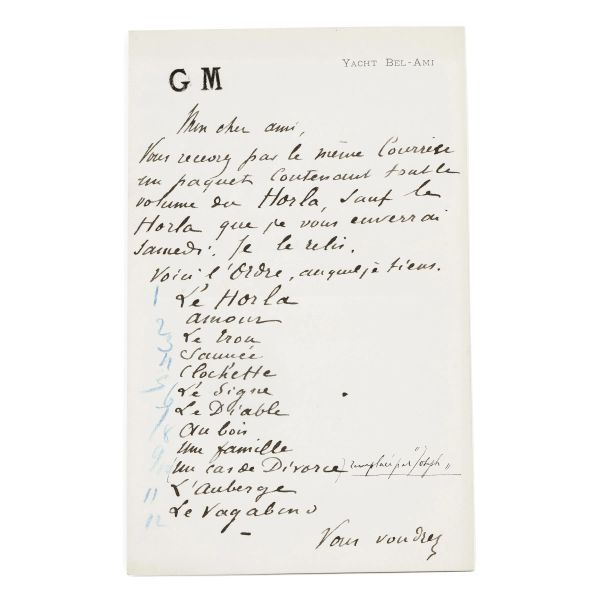 G M
YACHT BEL-AMI
Mon cher ami,
Vous recevez par le même Courrier
un paquet Contenant tout le
volume du Horla, sauf le
Horla que je vous enverrai
samedi. Je le relis.
Voici l'Ordre, auquel je tiens.
1 Le Horla
2 amour
3 Le Trou
4 Sauvée
5 Clochette
6 Le Signe
7 Le Diable
8 au bois
9 une famille
(un cas de Divorce) remplacé par "Joseph"
11 L'auberge
12 Le Vagabond
Vous voudrez